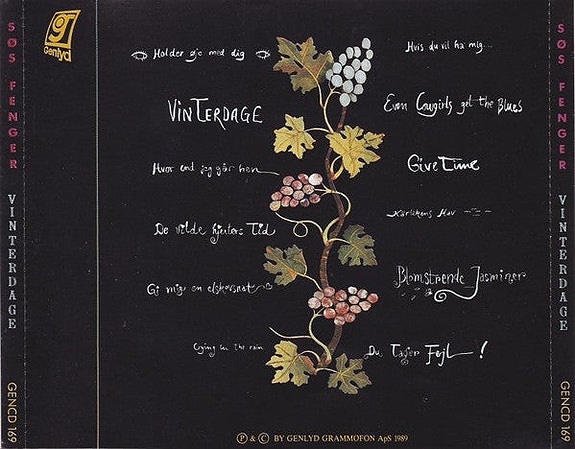 Genlyd
SØS FENGER VINTERDAGE GENCD 169
Holder øje med dig
VINTERDAGE
Hvor end jeg går hen
De vilde hjerters Tid
Gi mig en elskovsnat
Crying in the rain
Hvis du vil ha mig...
Even Cowgirls get the Blues
Give Time
Kärlekens Hav
Blomstrende Jasminer
Du Tager Fejl !
SØS FENGER VINTERDAGE GENCD 169
Ⓟ & Ⓒ BY GENLYD GRAMMOFON ApS 1989